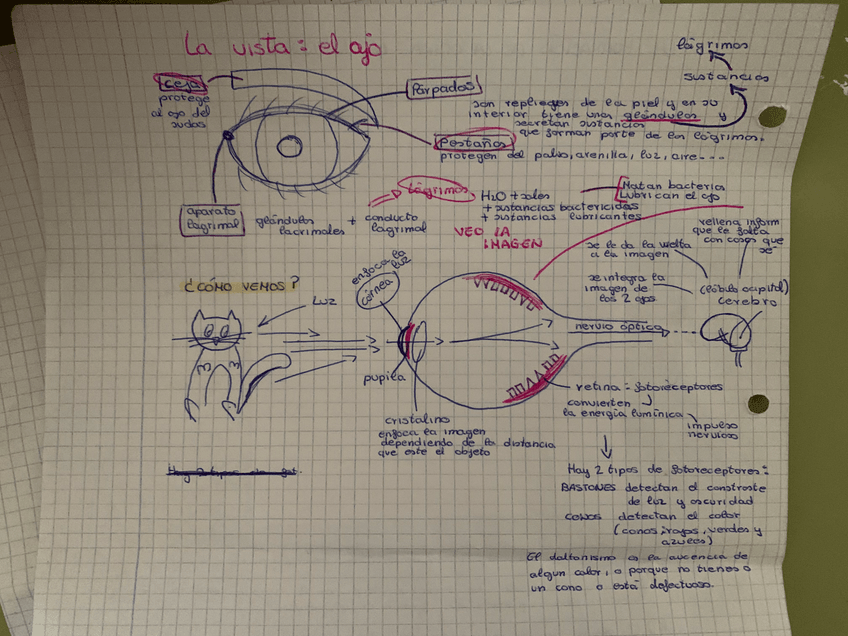 La vista: el ojo
lágrimas
sustancias
ceja
protege
al ojo del
sudor
Párpados
son repliegues de la piel y en su
interior tiene unas glándulas y
secretan sustancias
que forman parte de las lágrimas.
Pestañas
protegen del polvo, arenilla, luz, aire...
aparato
lagrimal
glándulas
lacrimales
+ conducto
lagrimal
lágrimas
H2O + sales
+ sustancias bactericidas
+ sustancias lubricantes
Matan bacterias
Lubrican el ojo
VEO LA
IMAGEN
rellena inform
que le falta
con cosas que
se le da la vuelta
a la imagen
se integra la
imagen de
los 2 ojos
(lóbulo occipital)
cerebro
¿CÓMO VEMOS?
LUZ
enfoca la
luz
córnea
nervio óptico
pupila
cristalino
enfoca la imagen
dependiendo de la distancia
que este el objeto
retina = fotoreceptores
convierten
la energía lumínica
impulso
nervioso
Hay 2 tipos de fotoreceptores:
BASTONES detectan el constraste
de luz y oscuridad
CONOS detectan el color
(conos rojos, verdes y
azules)
El daltonismo es la ausencia de
algun color, o porque no tienes o
un cono o está defectuoso.